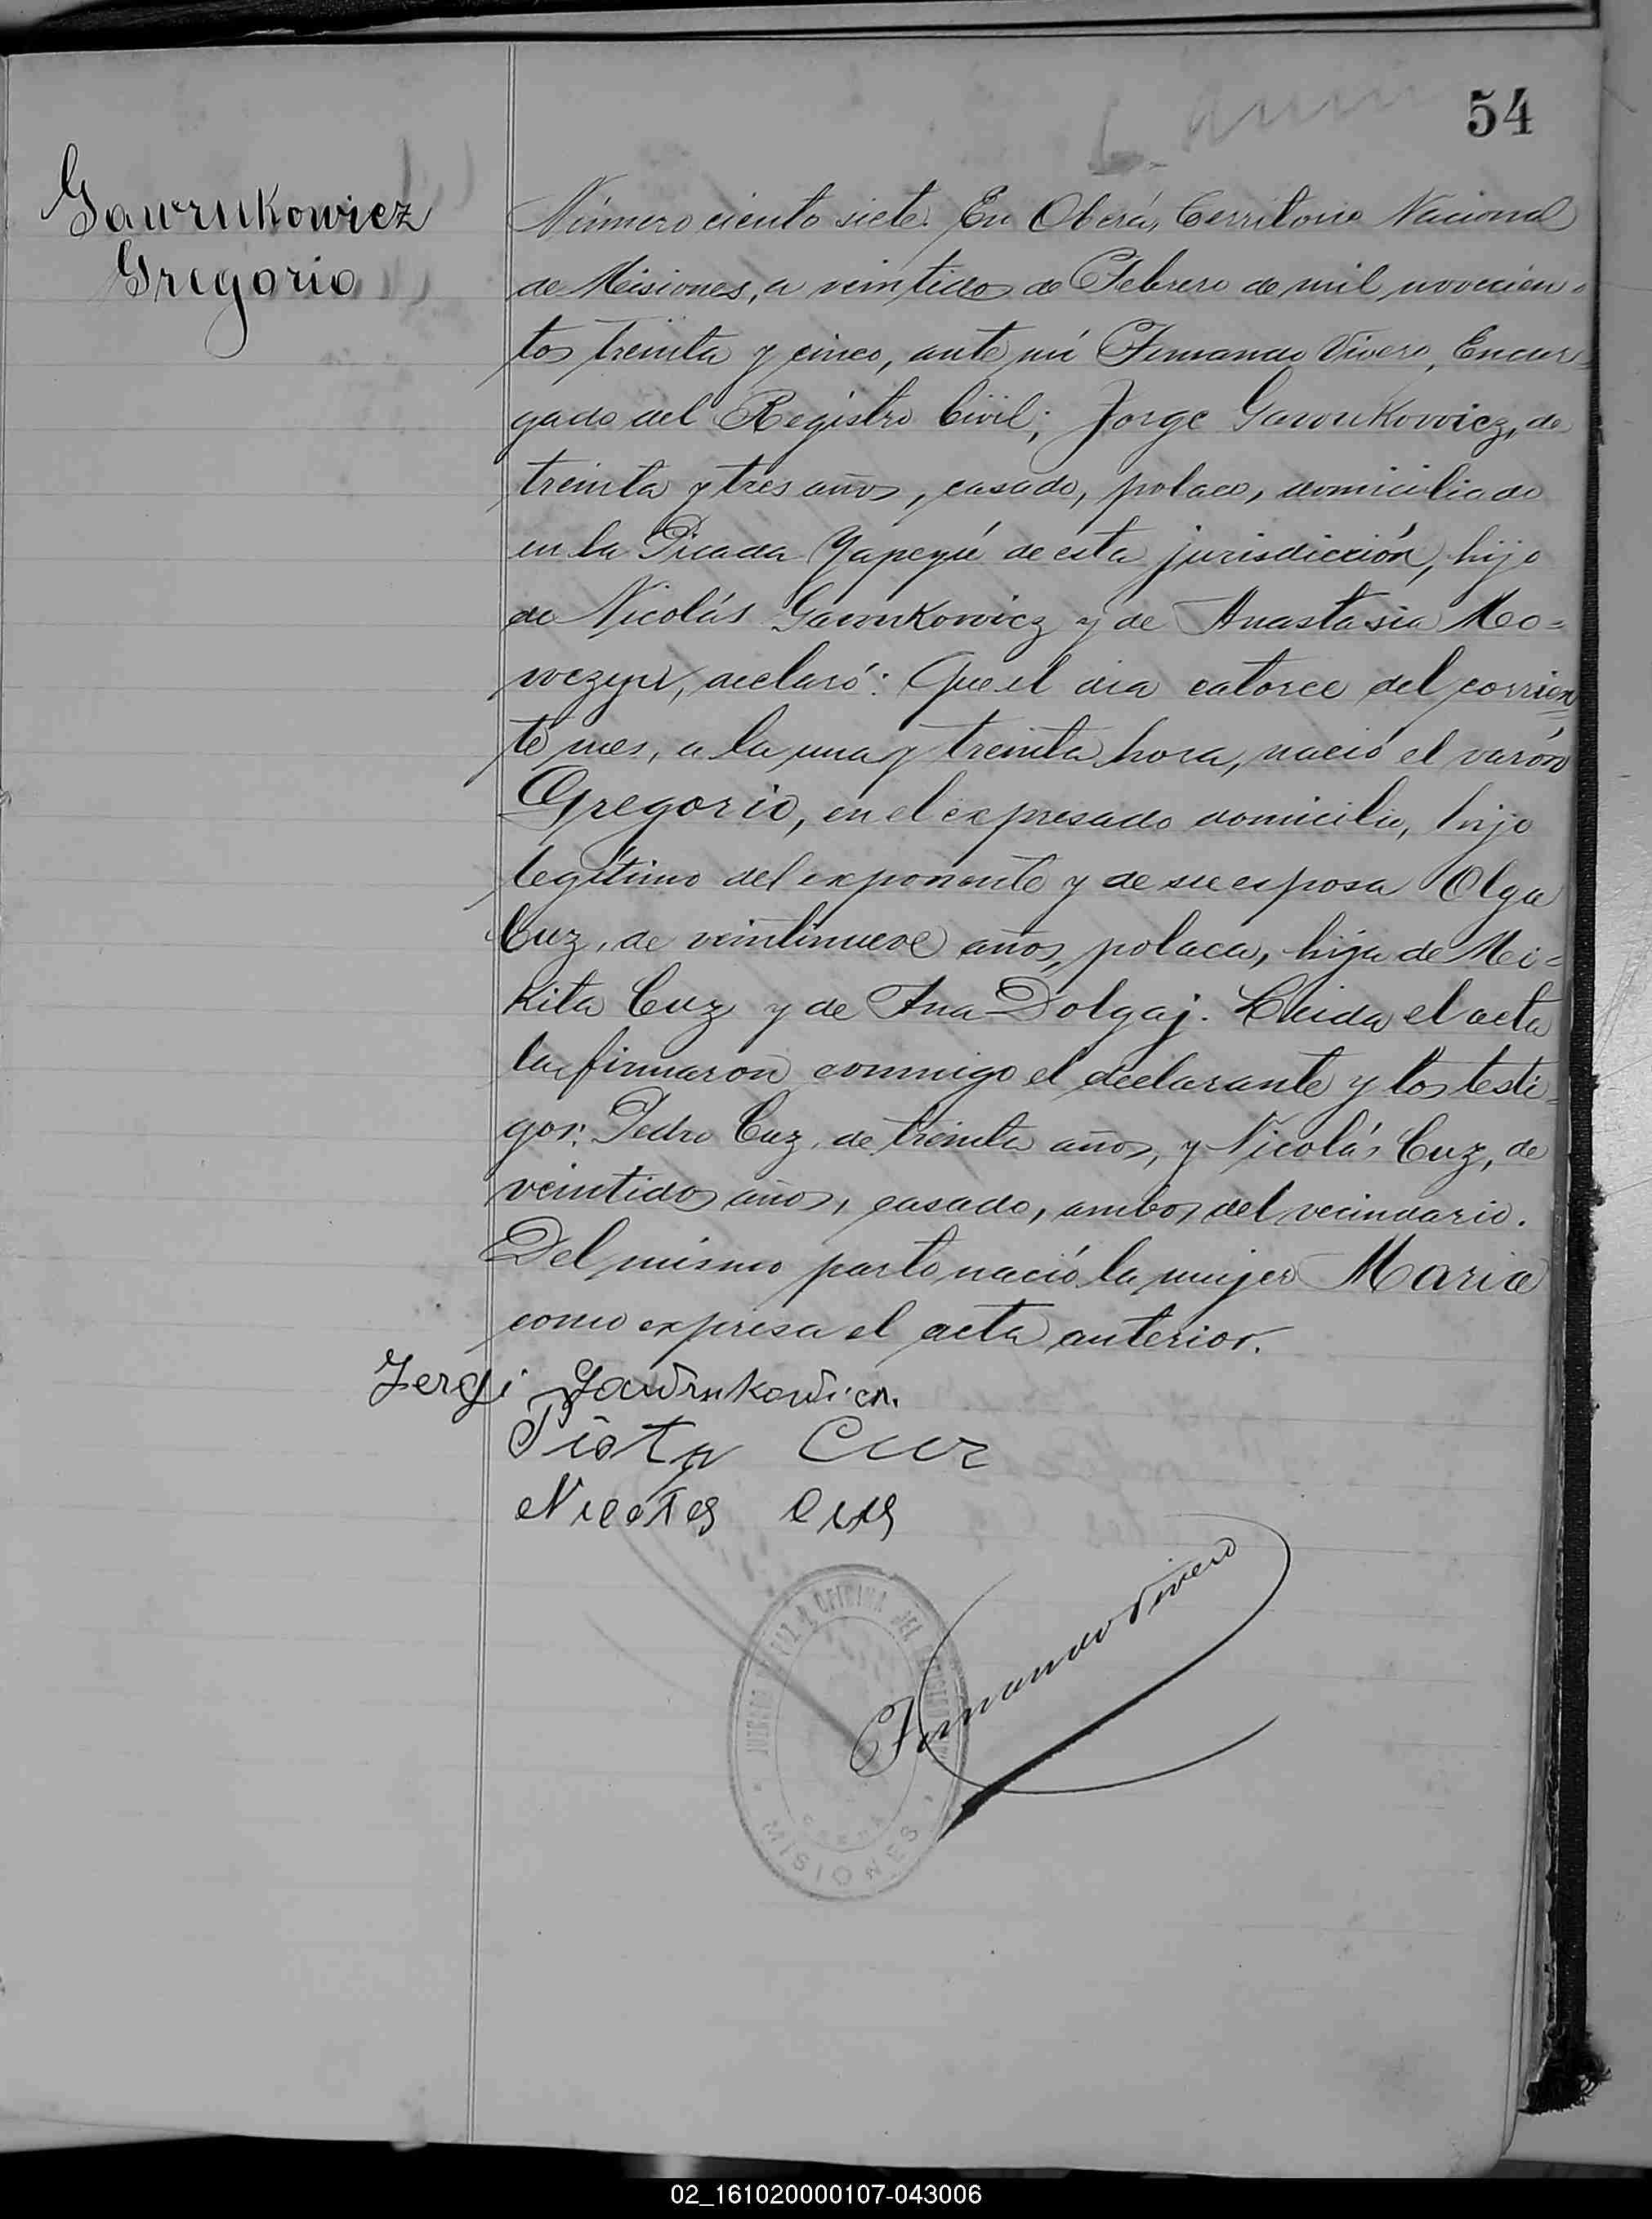 54
Gawrukowicz
Gregorio
Número ciento siete. En Oberá, Territorio Nacional
de Misiones, a veintidos de Febrero de mil novecien-
tos treinta y cinco, ante mí Fernando Vivero, Encar-
gado del Registro Civil; Jorge Gawrukowicz, de
treinta y tres años, casado, polaco, domiciliado
en la Picada Yapeyú de esta jurisdicción, hijo
de Nicolás Gawrukowicz y de Anastasia Mo=
wczyn, declaró: Que el dia catorce del corrien=
te mes, a la una y treinta hora, nació el varón
Gregorio, en el expresado domicilio, hijo
legítimo del exponente y de su esposa Olga
Cuz, de veintinueve años, polaca, hija de Mi=
kita Cuz y de Ana Dolgaj. Leida el acta
la firmaron conmigo el declarante y los testi=
gos: Pedro Cuz, de treinta años, y Nicolás Cuz, de
veintidos años, casado, ambos del vecindario.
Del mismo parto nació la mujer Maria
como expresa el acta anterior.
Jergi Gawrukowicz.
Piotr Cuz
Cuz
Fernando Vivero
JUZGADO DE PAZ & OFICINA DEL REGISTRO CIVIL
OBERÁ
MISIONES
02_161020000107-043006